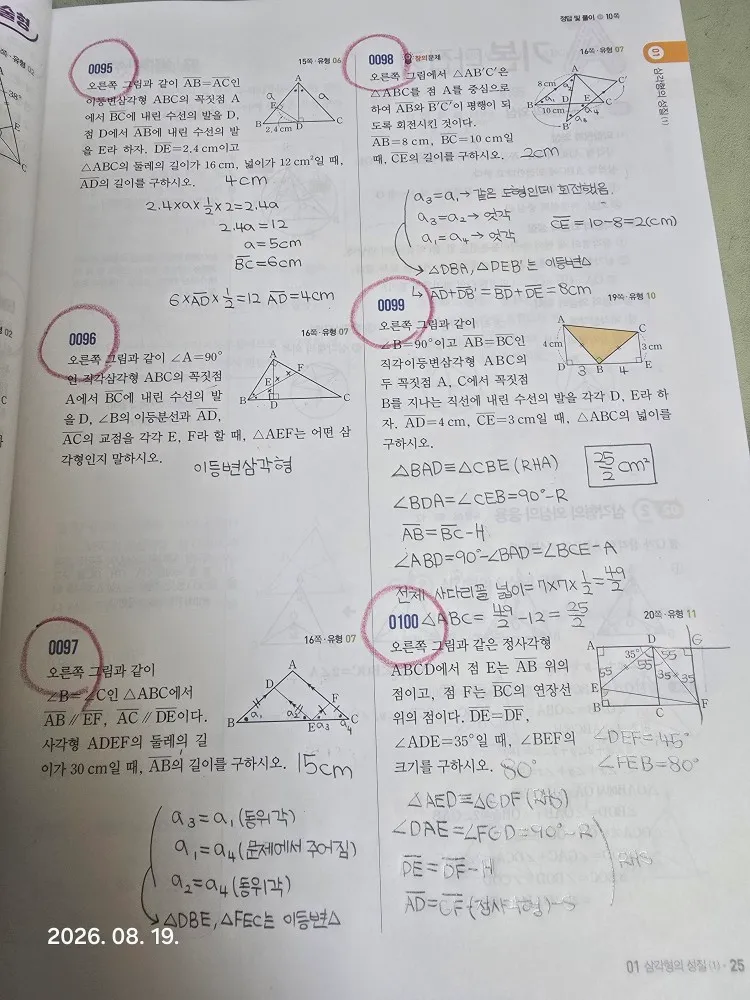 술형
정답 및 풀이 10쪽
01
삼각형의 성질 (1)
0095
15쪽·유형 06
오른쪽 그림과 같이 AB=AC인
이등변삼각형 ABC의 꼭짓점 A
에서 BC에 내린 수선의 발을 D,
점 D에서 AB에 내린 수선의 발
을 E라 하자. DE=2.4 cm이고
△ABC의 둘레의 길이가 16 cm, 넓이가 12 cm²일 때,
AD의 길이를 구하시오. 4cm
A
a
a
E
B
D
C
2.4 cm
2.4×a×1/2×2=2.4a
2.4a=12
a=5cm
BC=6cm
6×AD×1/2=12 AD=4cm
0096
16쪽·유형 07
오른쪽 그림과 같이 ∠A=90°
인 직각삼각형 ABC의 꼭짓점
A에서 BC에 내린 수선의 발
을 D, ∠B의 이등분선과 AD,
AC의 교점을 각각 E, F라 할 때, △AEF는 어떤 삼
각형인지 말하시오.
이등변삼각형
A
F
E
B
D
C
0097
16쪽·유형 07
오른쪽 그림과 같이
∠B=∠C인 △ABC에서
AB∥EF, AC∥DE이다.
사각형 ADEF의 둘레의 길
이가 30 cm일 때, AB의 길이를 구하시오. 15cm
A
D
F
B
a₁
a₂
E
a₃
a₄
C
a₃=a₁(동위각)
a₁=a₄(문제에서 주어짐)
a₂=a₄(동위각)
→△DBE, △FEC는 이등변△
0098
창의문제
16쪽·유형 07
오른쪽 그림에서 △AB'C'은
△ABC를 점 A를 중심으로
하여 AB와 B'C'이 평행이 되
도록 회전시킨 것이다.
AB=8 cm, BC=10 cm일
때, CE의 길이를 구하시오. 2cm
A
8 cm
a₂
C'
B
a₁
D
E
a₄
C
10 cm
a₃
B'
a₃=a₁→같은 도형인데 회전했음
a₃=a₂→엇각
a₁=a₄→엇각
CE=10-8=2(cm)
→△DBA, △DEB'는 이등변△
↳AD+DB'=BD+DE=8cm
0099
19쪽·유형 10
오른쪽 그림과 같이
∠B=90°이고 AB=BC인
직각이등변삼각형 ABC의
두 꼭짓점 A, C에서 꼭짓점
B를 지나는 직선에 내린 수선의 발을 각각 D, E라 하
자. AD=4 cm, CE=3 cm일 때, △ABC의 넓이를
구하시오.
A
C
4 cm
3 cm
D
3
B
4
E
25/2 cm²
△BAD≡△CBE (RHA)
∠BDA=∠CEB=90°-R
AB=BC-H
∠ABD=90°-∠BAD=∠BCE-A
전체 사다리꼴 넓이=7×7×1/2=49/2
△ABC=49/2-12=25/2
0100
20쪽·유형 11
오른쪽 그림과 같은 정사각형
ABCD에서 점 E는 AB 위의
점이고, 점 F는 BC의 연장선
위의 점이다. DE=DF,
∠ADE=35°일 때, ∠BEF의
크기를 구하시오. 80°
A
D
G
35°
55
55
55
35
35
E
B
C
F
∠DEF=45°
∠FEB=80°
△AED≡△CDF (RHS)
∠DAE=∠FCD=90°-R
DE=DF-H
AD=CF(정사각형)-S
RHS
01 삼각형의 성질 (1)·25
2026. 08. 19.